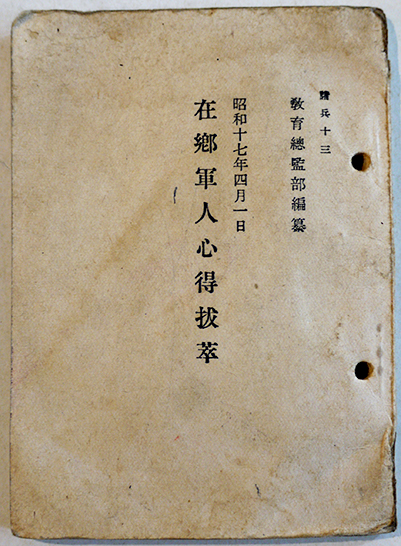 兵十三
教育總監部編纂
昭和十七年四月一日
在鄕軍人心得拔萃